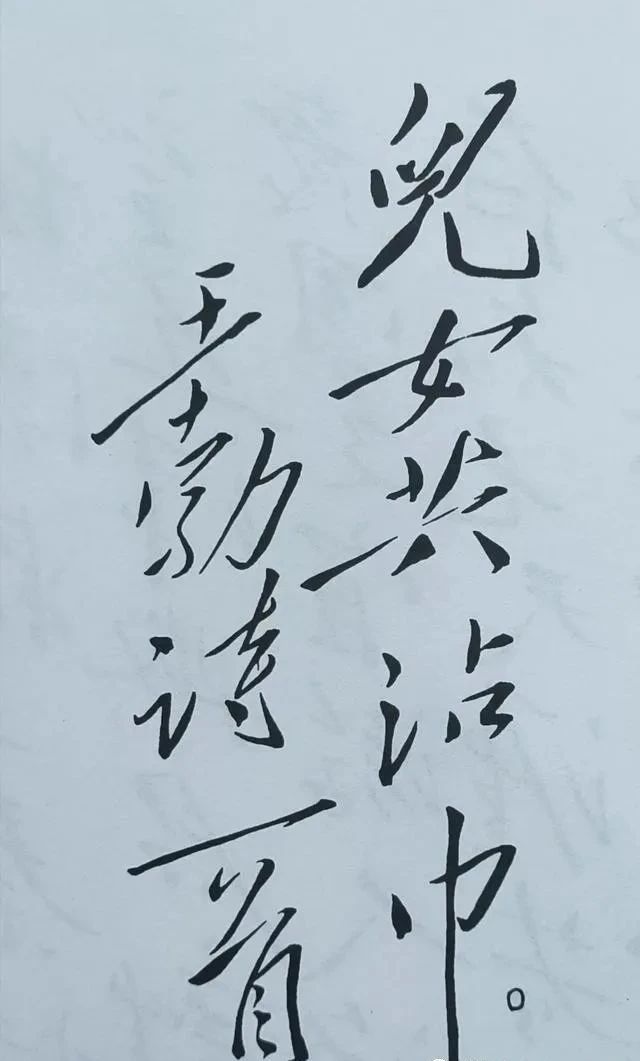 兒女共沾巾。
王勃诗一首